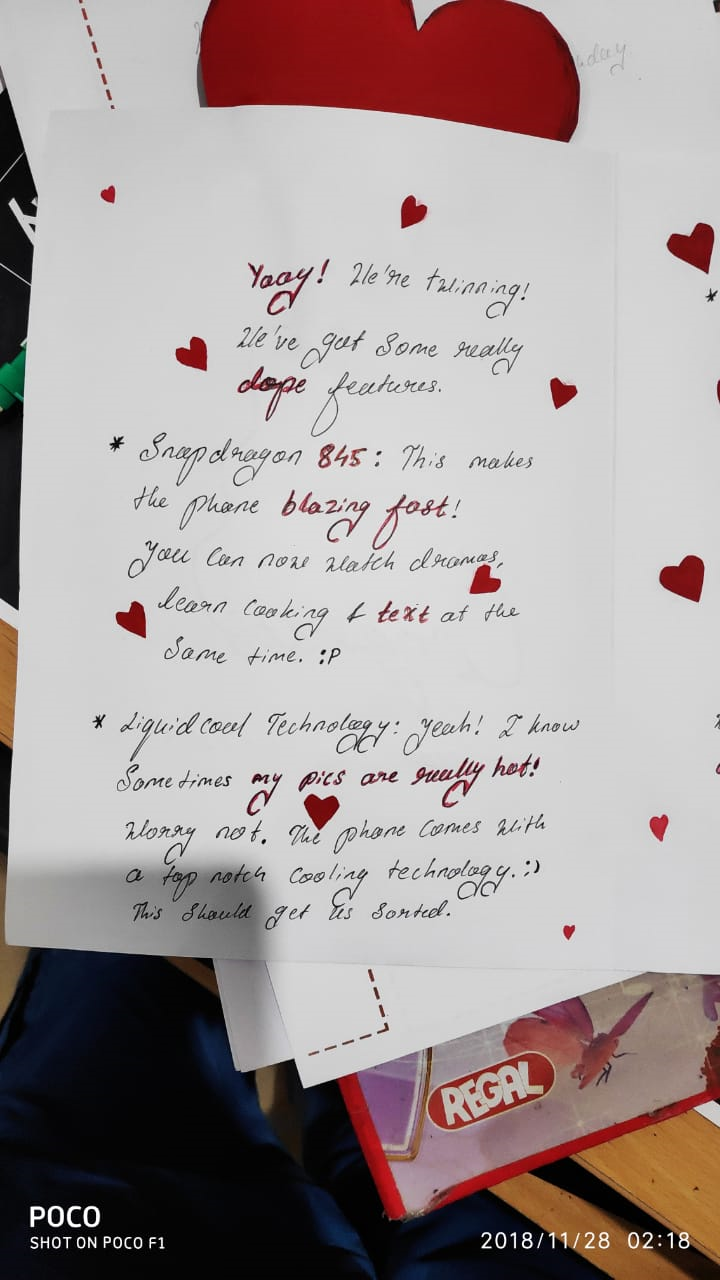 Yaay! We're twinning!
We've got some really
dope features.
* Snapdragon 845: This makes
the phone blazing fast!
You can now watch dramas,
learn cooking & text at the
same time. :P
* Liquid cool Technology: Yeah! I know
Sometimes my pics are really hot!
Worry not. The phone comes with
a top notch cooling technology. :)
This should get us sorted.
*
REGAL
POCO
SHOT ON POCO F1
2018/11/28 02:18